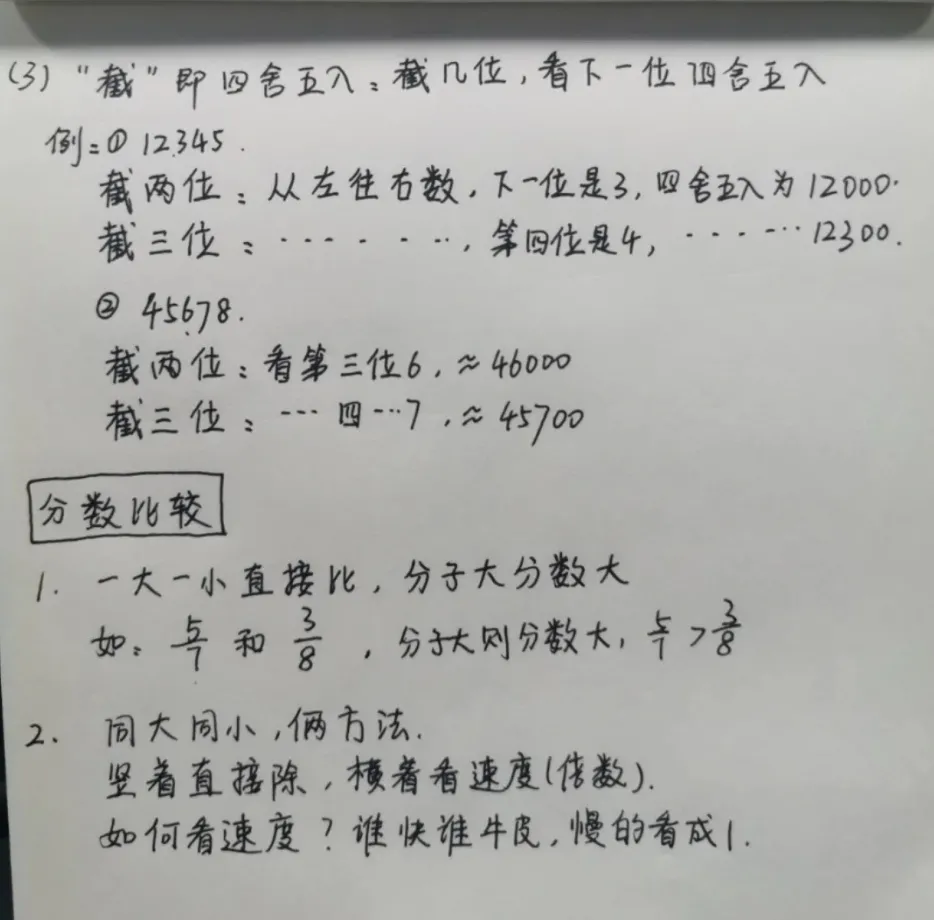 (3) “截”即四舍五入：截几位，看下一位四舍五入
例：① 12345.
截两位：从左往右数，下一位是3，四舍五入为12000.
截三位：·······，第四位是4，······12300.
② 45678.
截两位：看第三位6，≈46000
截三位：···四···7，≈45700
分数比较
1. 一大一小直接比，分子大分数大
如：5/7 和 3/8，分子大则分数大，5/7 > 3/8
2. 同大同小，俩方法.
竖着直接除，横着看速度(倍数).
如何看速度？谁快谁牛皮，慢的看成1.